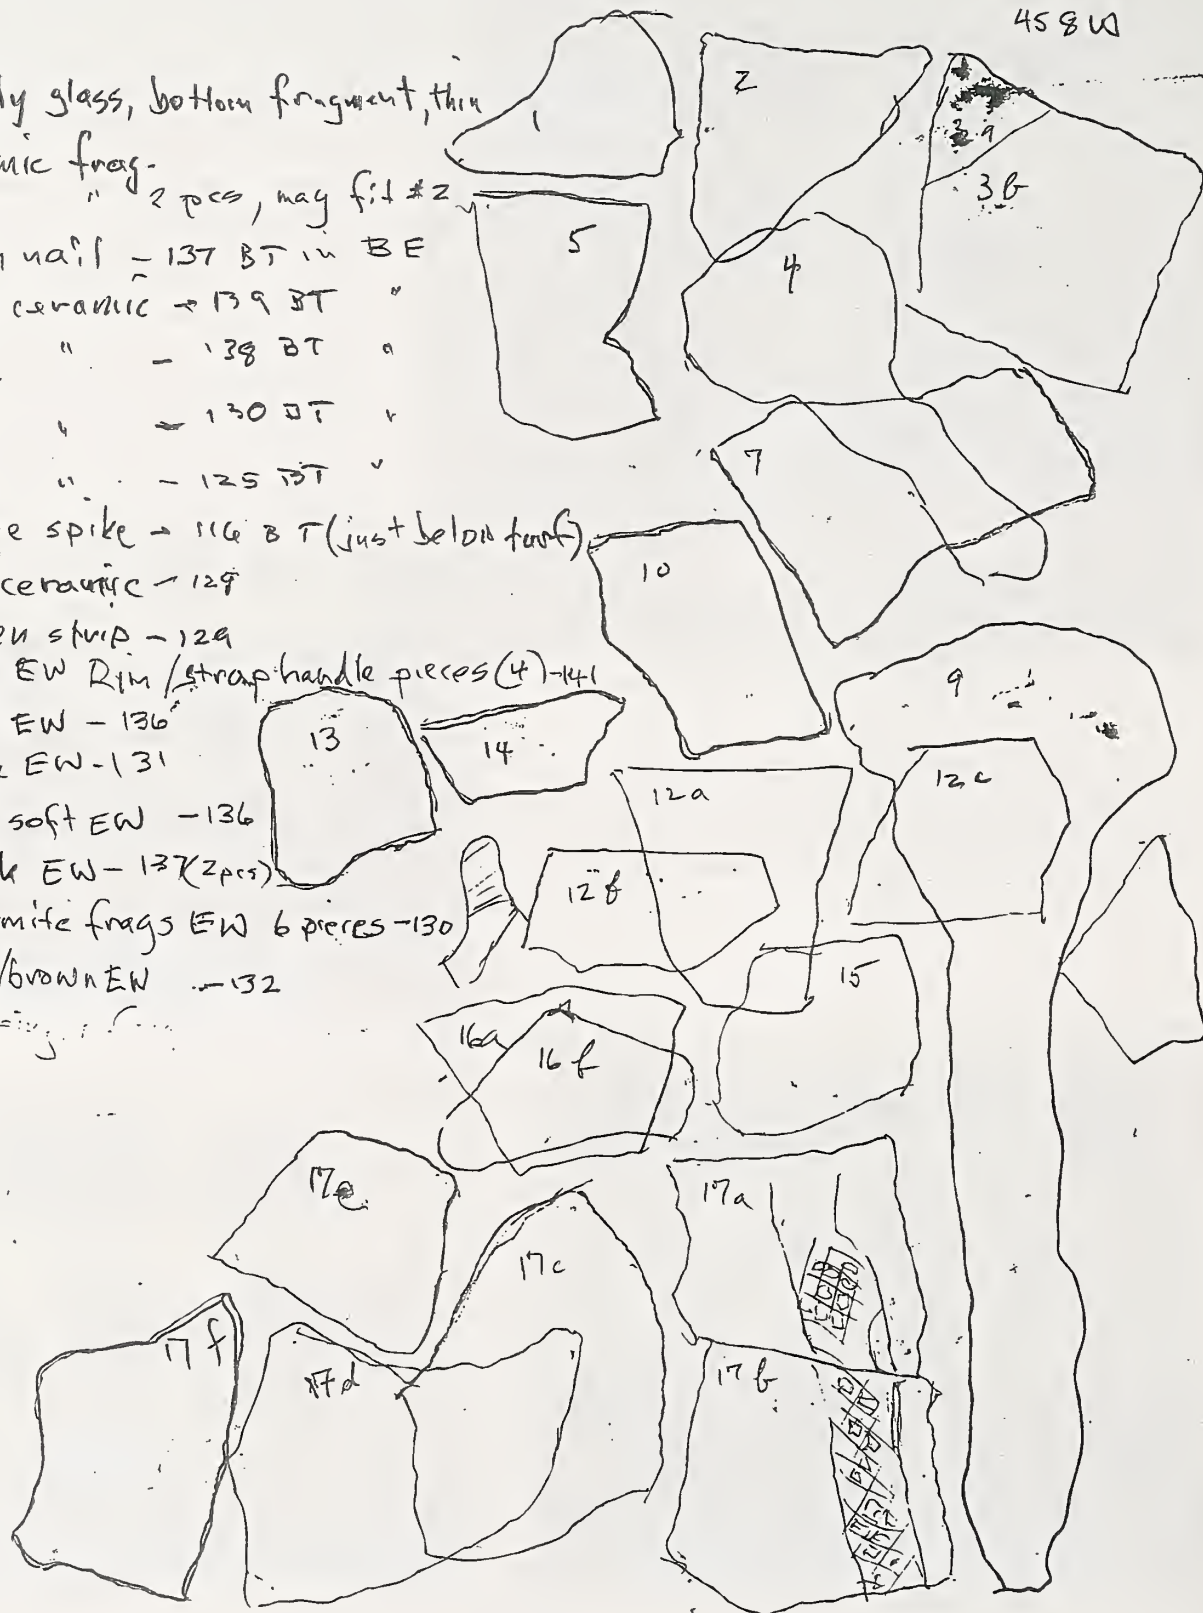 458W
ly glass, bottom fragment, thin
mic frag.
" 2 pcs, may fit #2
nail - 137 BT in BE
ceramic - 139 BT "
" - 138 BT "
" - 130 BT "
" - 125 BT "
e spike - 116 BT (just below turf)
ceramic - 129
en strip - 129
EW Rim/strap handle pieces (4) - 141
EW - 136
EW - 131
soft EW - 136
k EW - 137 (2 pcs)
mite frags EW 6 pieces - 130
/brown EW - 132
1
2
3a
3b
5
4
7
10
9
13
14
12a
12c
12b
15
16a
16b
17e
17a
17c
17f
17d
17b